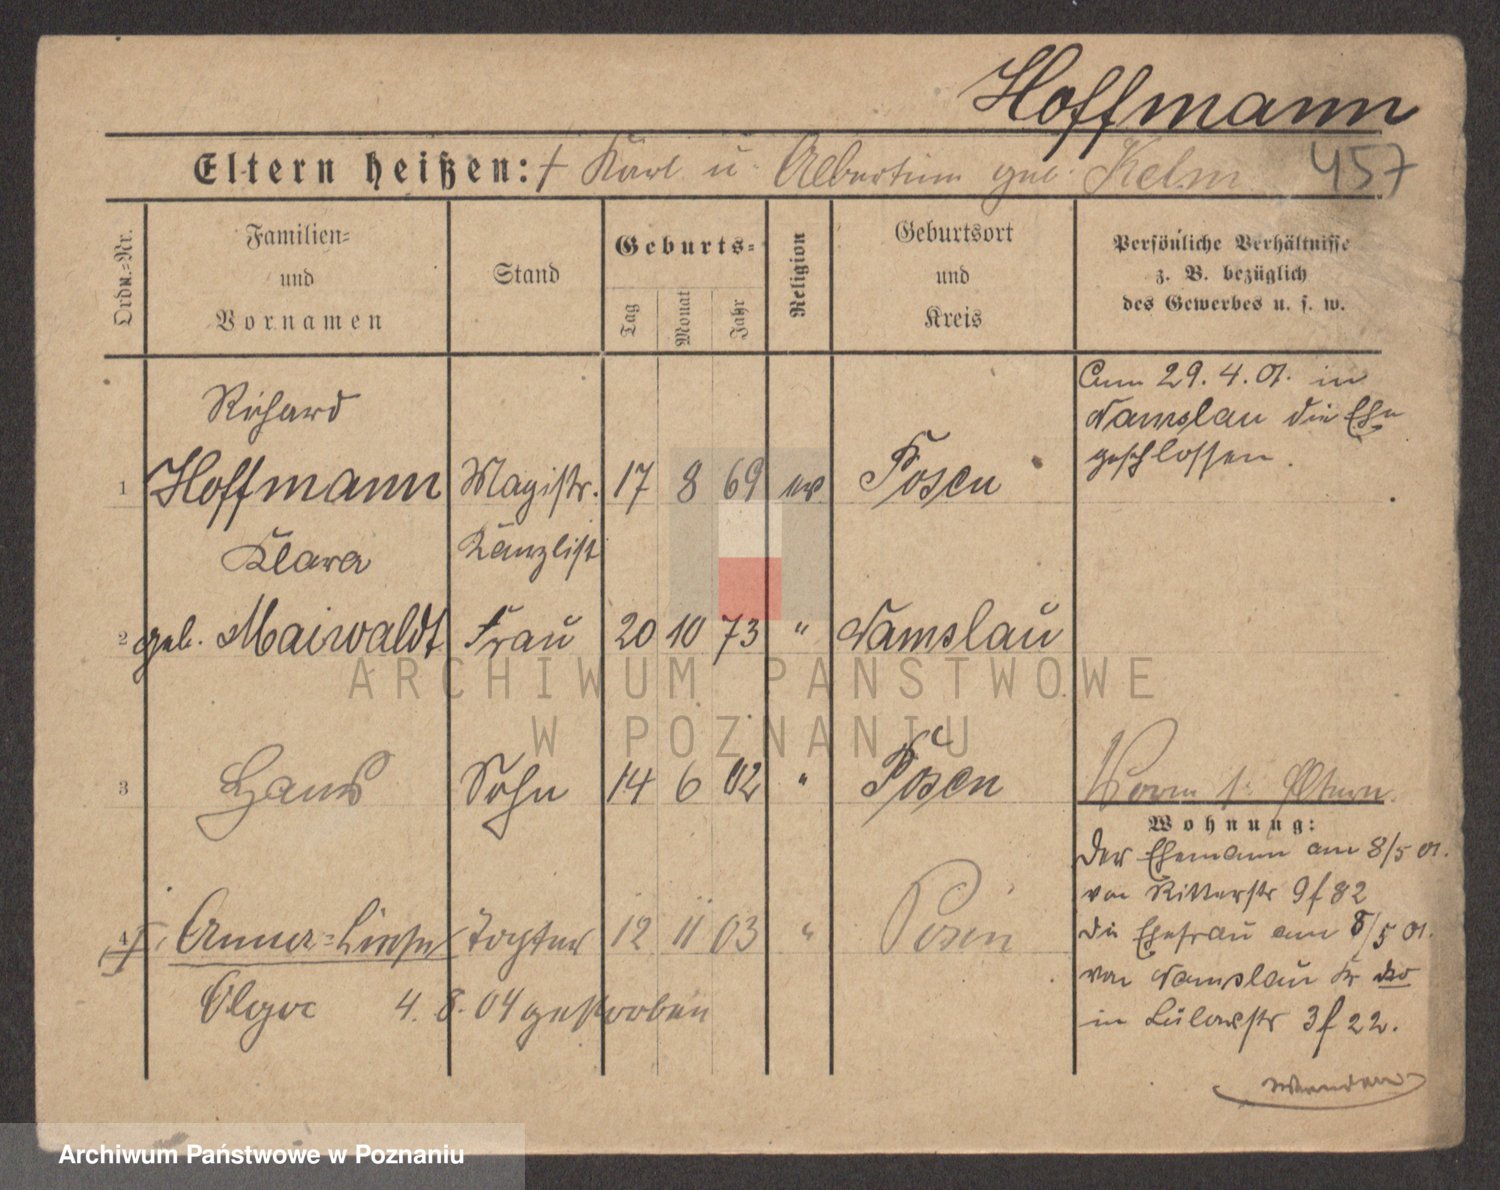 Hoffmann
Eltern heißen: † Karl u. Albertine geb. Kelm 457
Ordn.=Nr.
Familien=
und
Vornamen
Stand
Geburts=
Tag
Monat
Jahr
Religion
Geburtsort
und
Kreis
Persönliche Verhältnisse
z. B. bezüglich
des Gewerbes u. s. w.
Richard
1 Hoffmann Magistr. 17 8 69 ev Posen
Kanzlist
Am 29. 4. 01. in
Namslau die Ehe
geschlossen.
Klara
2 geb. Maiwaldt Frau 20 10 73 " Namslau
3 Hans Sohn 14 6 02 " Posen
4 Anna=Liese Tochter 12 11 03 " Posen
Olga 4. 8. 04 gestorben
Eltern.
Wohnung:
Der Ehemann am 8/5 01.
von Ritterstr 9 f 82
die Ehefrau am 8/5 01.
von Namslau Kr do
in Bülowstr 3 f 22.
Wenden
ARCHIWUM PAŃSTWOWE
W POZNANIU
Archiwum Państwowe w Poznaniu